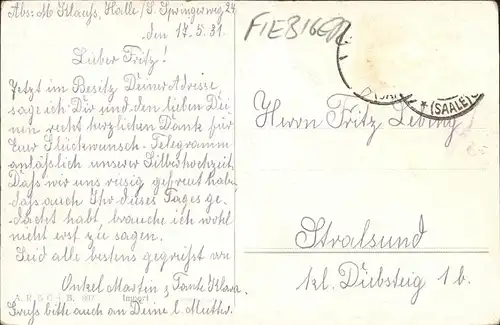 Abs: M. Klauß, Halle/S. Springerweg 24
den 17.5.31.
FIEBIGER
Lieber Fritz!
Jetzt im Besitz Deiner Adresse,
sage ich Dir und den lieben Dei-
nen recht herzlichen Dank für
Eure Glückwunsch-Telegramm
anläßlich unserer Silberhochzeit.
Daß wir uns riesig gefreut hab.
daß auch Ihr dieses Tages ge-
dacht habt, brauche ich wohl
nicht erst zu sagen.
Seid alle bestens gegrüßt von
Onkel Martin & Tante Klara.
Gruß bitte auch an Deine l. Mutter.
Import
* (SAALE)
Herrn Fritz
Stralsund
kl. Diebsteig 1b.